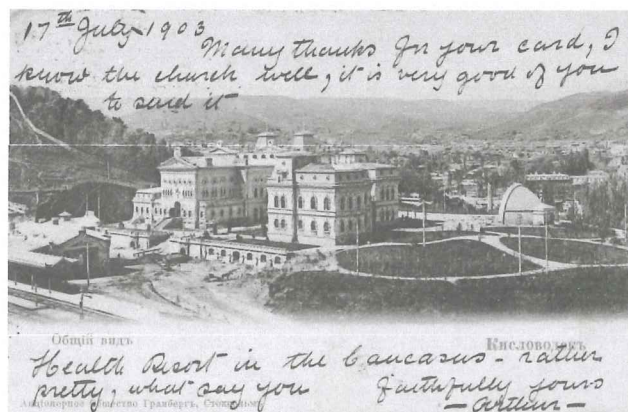 17th July 1903
Many thanks for your card, I
know the church well, it is very good of you
to send it
Общій видъ
Кисловодскъ
Health Resort in the Caucasus - rather
pretty, what say you
faithfully yours
Акціонерное Общество Гранбергъ, Стокгольмъ
- Arthur -